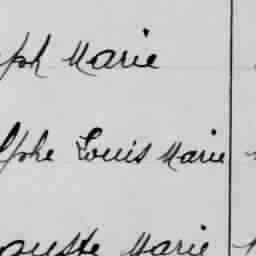 ph Marie
lphe Louis Marie
guste Marie